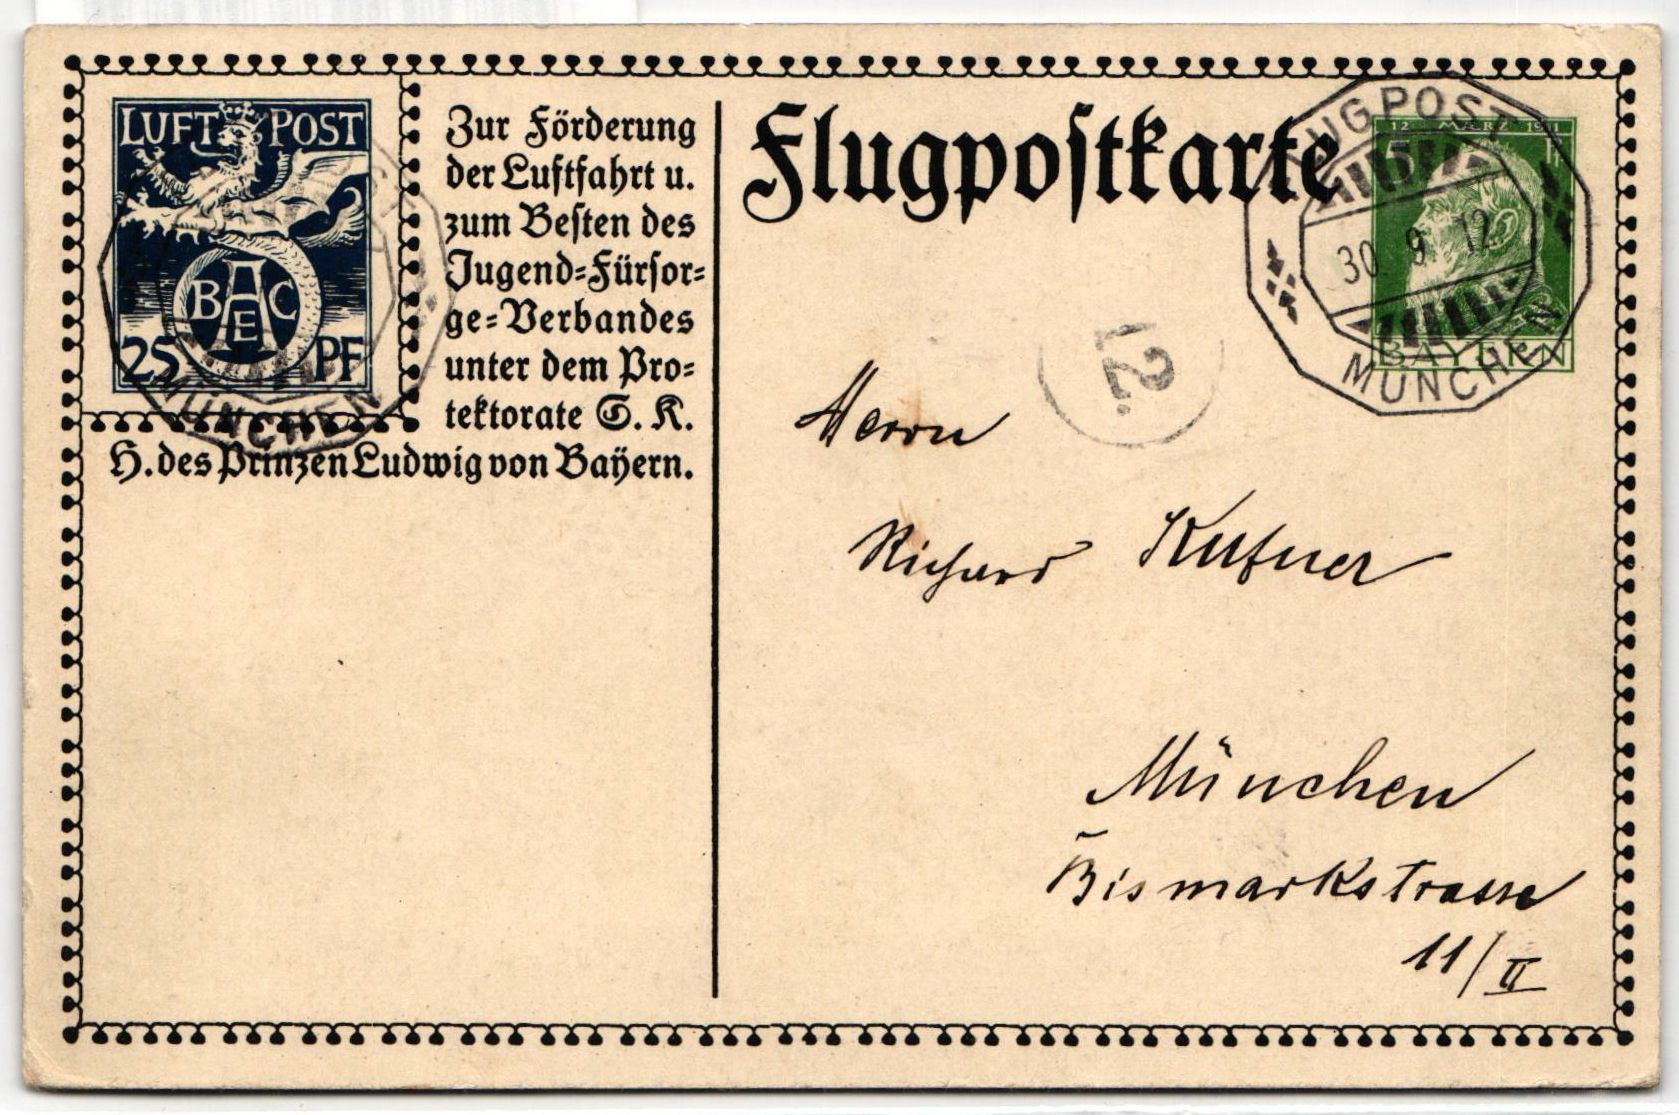 LUFT POST
BAEC
25 PF
MÜNCHEN
Zur Förderung
der Luftfahrt u.
zum Besten des
Jugend=Fürsor=
ge=Verbandes
unter dem Pro=
tektorate S. K.
H. des Prinzen Ludwig von Bayern.
Flugpostkarte
FLUGPOST
30. 9. 12
MÜNCHEN
12 MÄRZ 1911
BAYERN
12.
Herrn
Richard Kufner
München
Bismarkstrasse
11/II